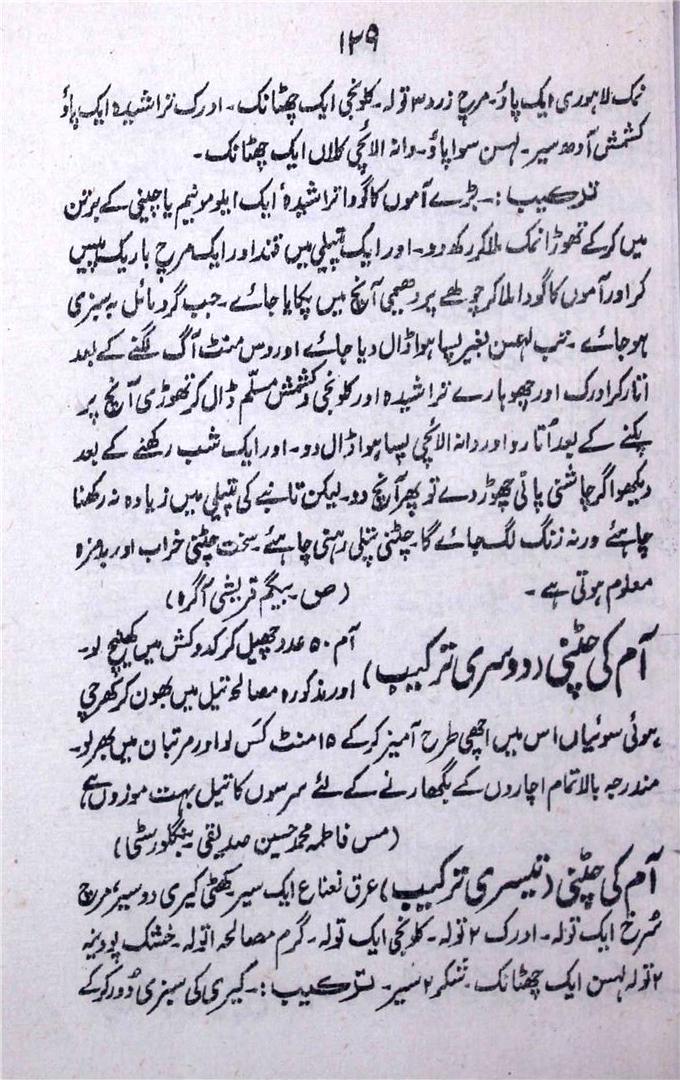 ۱۲۹
نمک لاہوری ایک پاؤ۔ مرچ زرد ۳ تولہ۔ کلونجی ایک چھٹانک۔ ادرک تراشیدہ ایک پاؤ
کشمش آدھ سیر۔ لہسن سوا پاؤ۔ دانہ الائچی کلاں ایک چھٹانک۔
ترکیب :۔ بڑے آموں کا گودا تراشیدہ ایک ایلومونیم یا چینی کے برتن
میں کرکے تھوڑا نمک ملا کر رکھ دو۔ اور ایک پتیلی میں قند اور ایک مرچ باریک پیس
کر اور آموں کا گودا ملا کر چولھے پر دھیمی آنچ میں پکایا جائے۔ جب گودہ مائل بہ سبزی
ہو جائے۔ تب لہسن بغیر پسا ہوا ڈال دیا جائے اور دس منٹ آگ لگنے کے بعد
اتار کر ادرک اور چھوہارے تراشیدہ اور کلونجی و کشمش مسلّم ڈال کر تھوڑی آنچ پر
پکنے کے بعد اُتارو اور دانہ الائچی پسا ہوا ڈال دو۔ اور ایک شب رکھنے کے بعد
دیکھو اگر چاشنی پانی چھوڑ دے تو پھر آنچ دو۔ لیکن تانبے کی پتیلی میں زیادہ نہ رکھنا
چاہئے ورنہ زنگ لگ جائے گا۔ چٹنی پتلی رہنی چاہئے۔ سخت چٹنی خراب اور بدمزہ
معلوم ہوتی ہے۔ (ص۔ بیگم قریشی آگرہ)
آم کی چٹنی (دوسری ترکیب) آم ۵۰ عدد چھیل کر کدوکش میں کھینچ لو۔
اور مذکورہ مصالحہ تیل میں بھون کر کھرچی
ہوئی سوئیاں اس میں اچھی طرح آمیز کرکے ۱۵ منٹ کَس لو اور مرتبان میں بھر لو۔
مندرجہ بالا تمام اچاروں کے بگھارنے کے لئے سرسوں کا تیل بہت موزوں ہے
(مس فاطمہ محمد حسین صدیقی بنگلور سٹی)
آم کی چٹنی (تیسری ترکیب) عرق نعناع ایک سیر کھٹی کیری دو سیر، مرچ
سُرخ ایک تولہ۔ ادرک ۲ تولہ۔ کلونجی ایک تولہ۔ گرم مصالحہ ا تولہ۔ خشک پودینہ
۲ تولہ لہسن ایک چھٹانک۔ شکر ۲ سیر۔ ترکیب :۔ کیری کی سبزی دُور کرکے